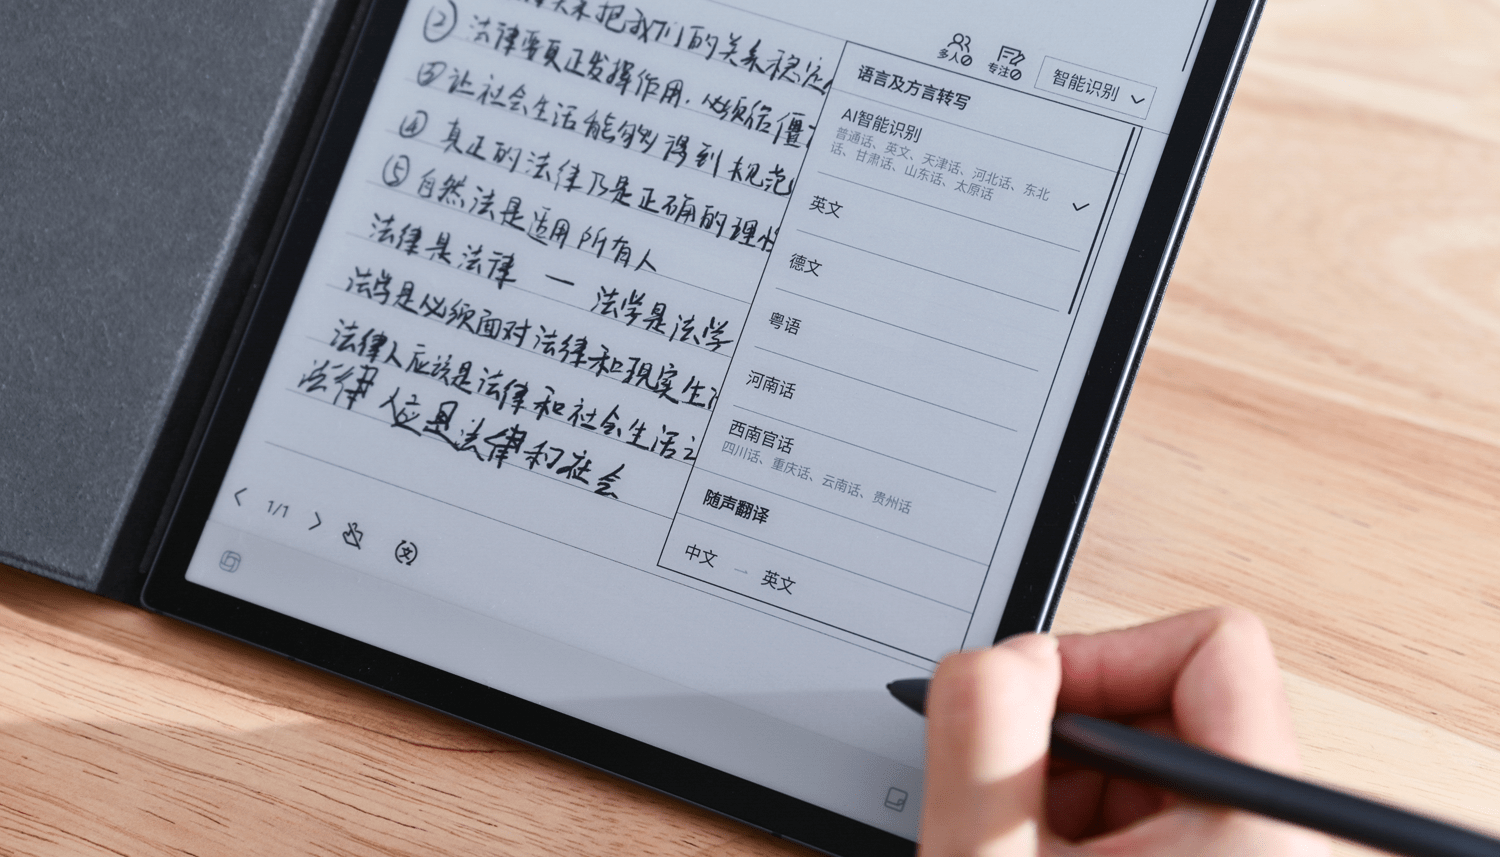 把我们的关系稳定
② 法律要真正发挥作用，必须信僵
③ 让社会生活能够得到规范
④ 真正的法律乃是正确的理性
⑤ 自然法是适用所有人
法律是法律 — 法学是法学
法学是必须面对法律和现实生活
法律人应该是法律和社会生活之
法律人应是法律和社会
1/1
多人
专注
智能识别
语言及方言转写
AI智能识别
普通话、英文、天津话、河北话、东北
话、甘肃话、山东话、太原话
英文
德文
粤语
河南话
西南官话
四川话、重庆话、云南话、贵州话
随声翻译
中文 → 英文